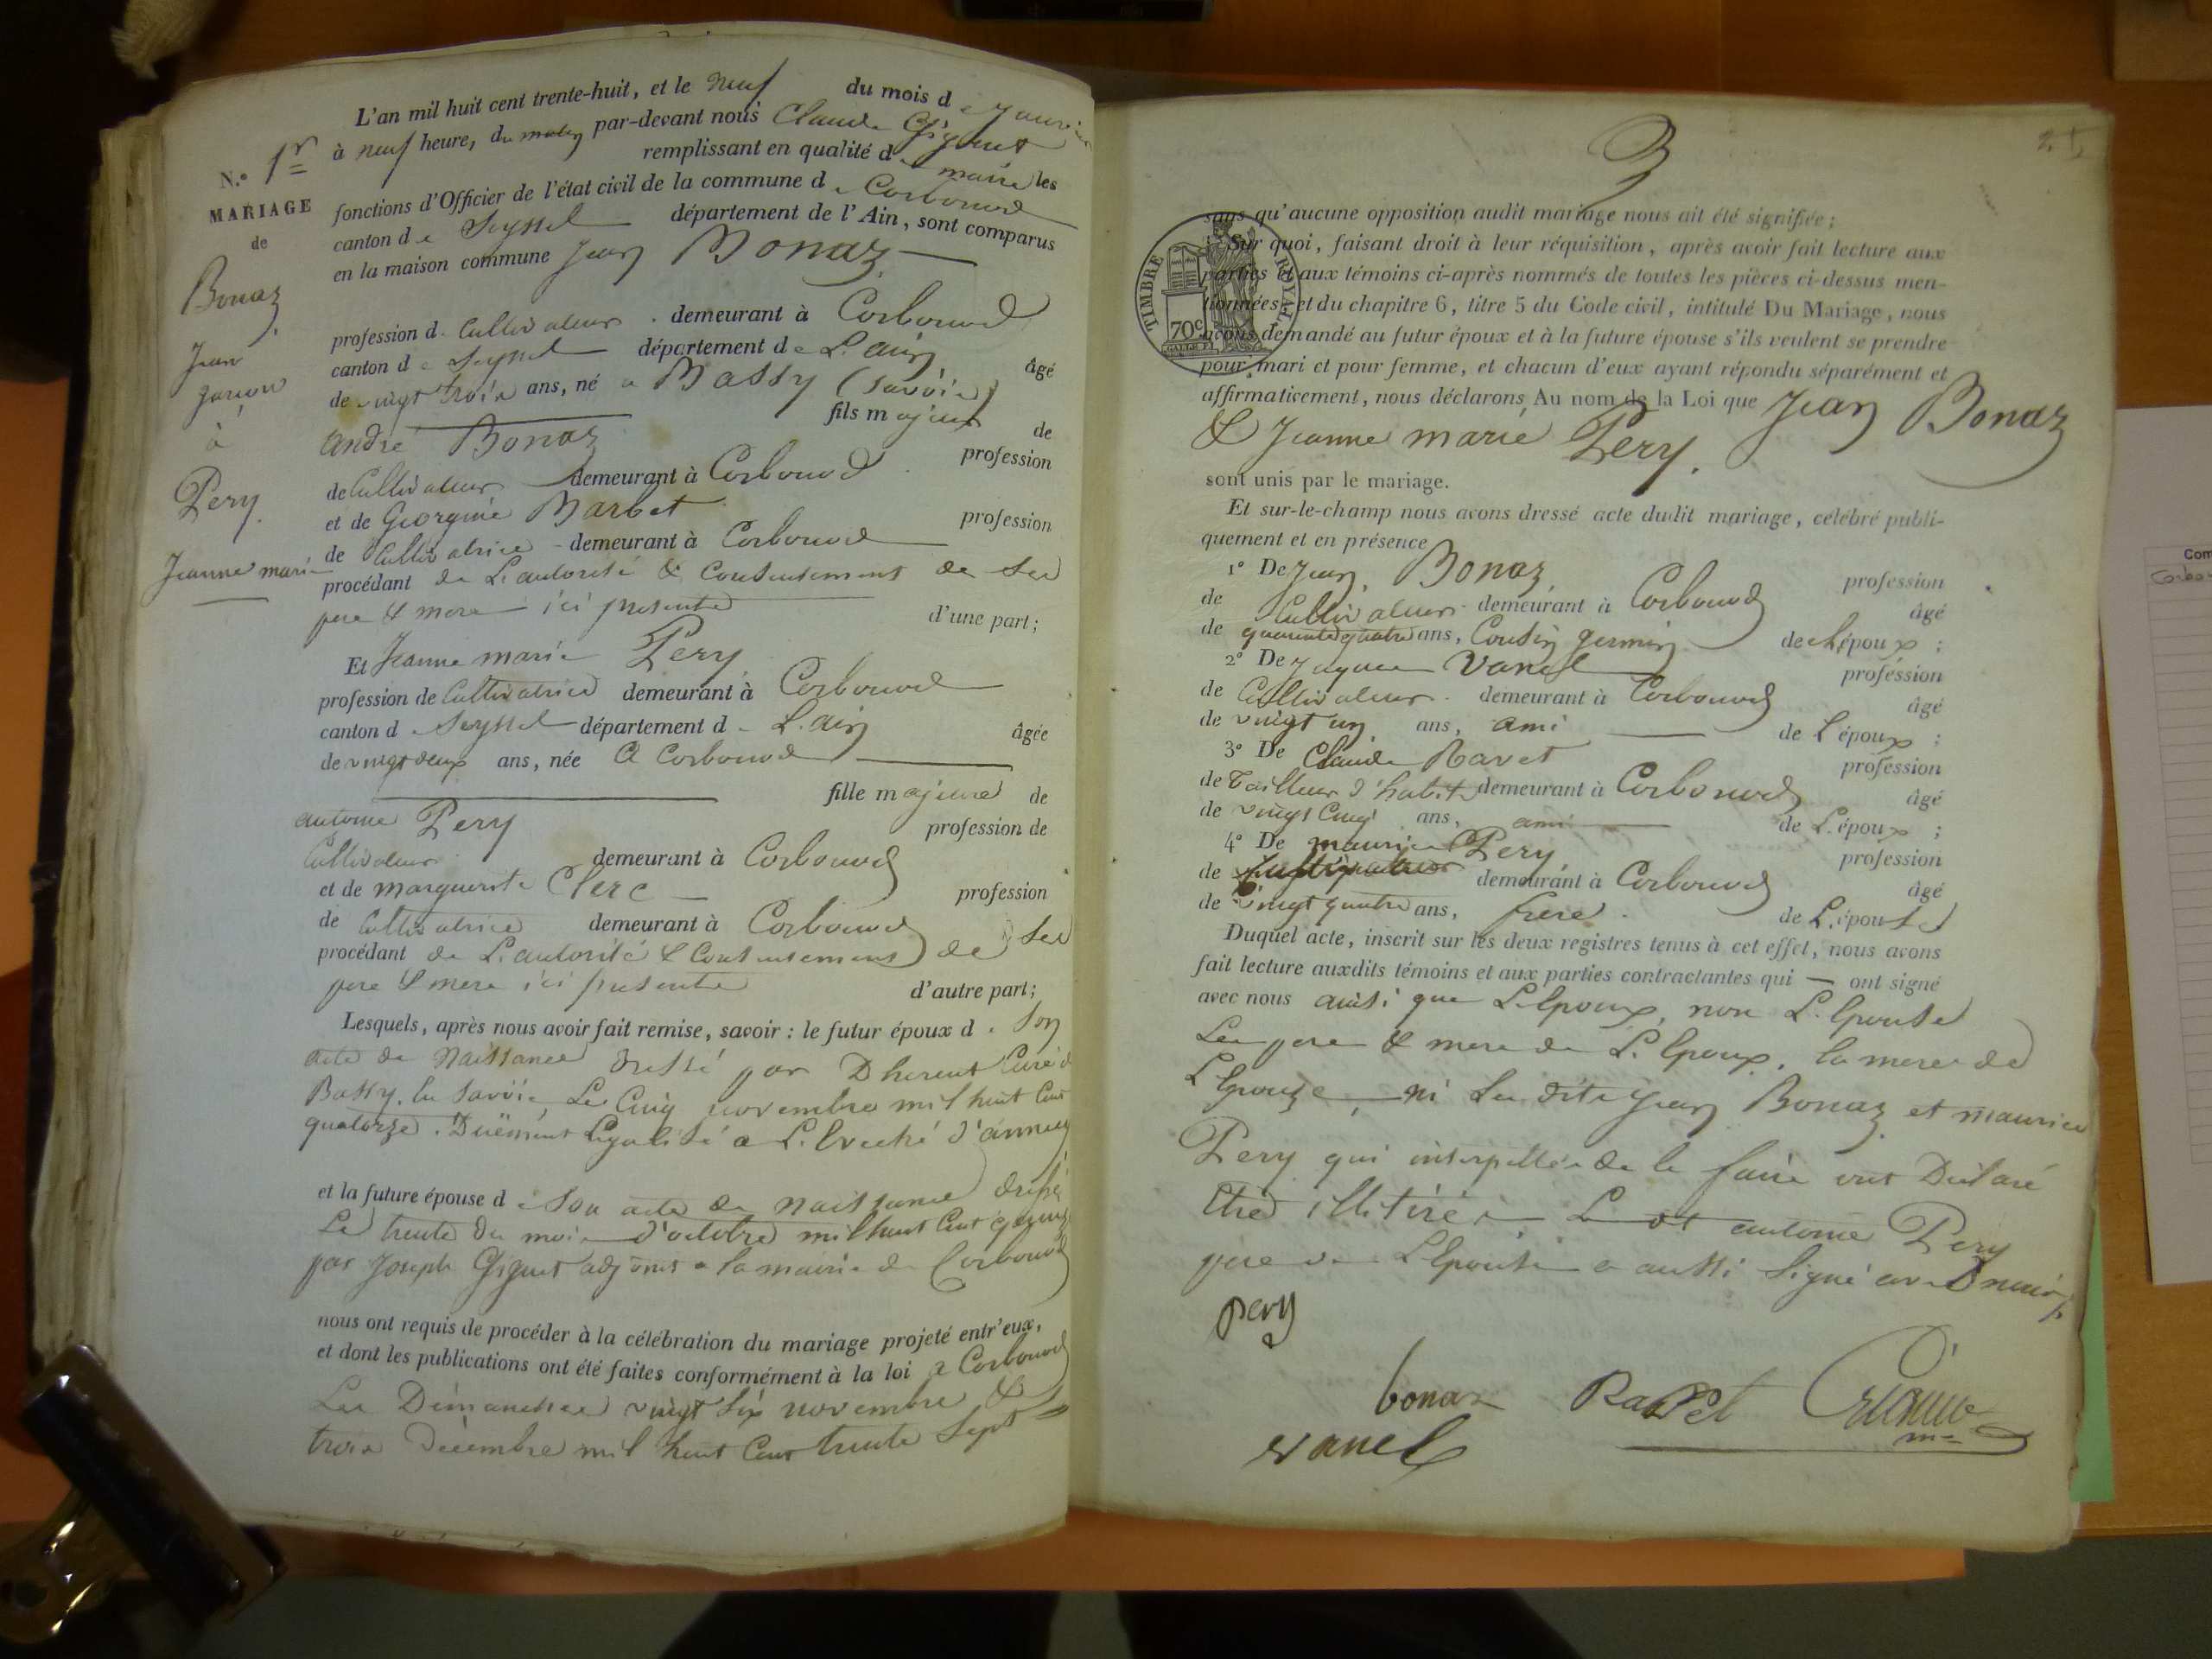 L'an mil huit cent trente-huit, et le neuf du mois de Janvier
à neuf heure, du matin par-devant nous Claude Gignet
remplissant en qualité de maire les
N.º 1r
MARIAGE
de
Bonaz
Jean
garçon
à
Pery
Jeanne marie
fonctions d'Officier de l'état civil de la commune de Corbonod
canton de Seyssel département de l'Ain, sont comparus
en la maison commune Jean Bonaz
profession d. Cultivateur demeurant à Corbonod
canton de Seyssel département de L'ain âgé
de vingt trois ans, né a Bassy (Savoie)
fils majeur de
andré Bonaz profession
de Cultivateur demeurant à Corbonod
et de Georgine Barbet profession
de Cultivatrice demeurant à Corbonod
procédant de L'autorité & Consentement de Ses
pere & mere ici presents d'une part;
Et Jeanne marie Pery
profession de Cultivatrice demeurant à Corbonod
canton de Seyssel département de L'ain âgée
de vingt deux ans, née a Corbonod
fille majeure de
antoine Pery profession de
Cultivateur demeurant à Corbonod
et de marguerite Clerc profession
de Cultivatrice demeurant à Corbonod
procédant de L'autorité & Consentement de Ses
pere & mere ici presents d'autre part;
Lesquels, après nous avoir fait remise, savoir : le futur époux de Son
acte de Naissance dressé par Curé de
Bassy, en Savoie, Le Cinq novembre mil huit Cent
quatorze. Duëment Legalisé a L'Eveché d'annecy
et la future épouse de Son acte de Naissance dressé
Le trente du mois d'octobre mil huit Cent quinze
par Joseph Gignet adjoint a la mairie de Corbonod
nous ont requis de procéder à la célébration du mariage projeté entr'eux,
et dont les publications ont été faites conformément à la loi a Corbonod
Les Dimanches vingt Six novembre &
trois Décembre mil huit Cent trente Sept
3
sans qu'aucune opposition audit mariage nous ait été signifiée;
TIMBRE ROYAL
70c
Sur quoi, faisant droit à leur réquisition, après avoir fait lecture aux
parties et aux témoins ci-après nommés de toutes les pièces ci-dessus men-
tionnées, et du chapitre 6, titre 5 du Code civil, intitulé Du Mariage, nous
avons demandé au futur époux et à la future épouse s'ils veulent se prendre
pour mari et pour femme, et chacun d'eux ayant répondu séparément et
affirmativement, nous déclarons Au nom de la Loi que Jean Bonaz
& Jeanne marie Pery.
sont unis par le mariage.
Et sur-le-champ nous avons dressé acte dudit mariage, célébré publi-
quement et en présence
1º De Jean Bonaz profession
de Cultivateur demeurant à Corbonod âgé
de quarante quatre ans, Cousin germain de L'époux ;
2º De Jaques Vanel profession
de Cultivateur demeurant à Corbonod âgé
de vingt un ans, ami de L'époux ;
3º De Claude Ravet profession
de Tailleur d'habits demeurant à Corbonod âgé
de vingt Cinq ans, ami de L'époux ;
4º De maurice Pery profession
de demeurant à Corbonod âgé
de vingt quatre ans, frere de L'épouse
Duquel acte, inscrit sur les deux registres tenus à cet effet, nous avons
fait lecture auxdits témoins et aux parties contractantes qui — ont signé
avec nous ainsi que L'Epoux, non L'Epouse
Les pere & mere de L'Epoux, la mere de
L'Epouze, ni Les dits Jean Bonaz et maurice
Pery qui interpellés de le faire ont Déclaré
Etre illitérés. antoine Pery
pere de L'Epouse a aussi Signé avec nous
pery
bonaz Ravet
vanel